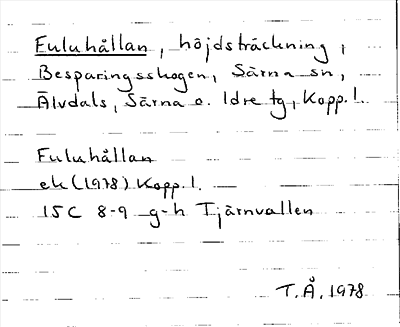 Fuluhållan, höjdsträckning,
Besparingsskogen, Särna sn,
Älvdals, Särna o. Idre tg, Kopp. l.
Fuluhållan
ek (1978) Kopp. l.
15C 8-9 g-h Tjärnvallen
T.Å. 1978